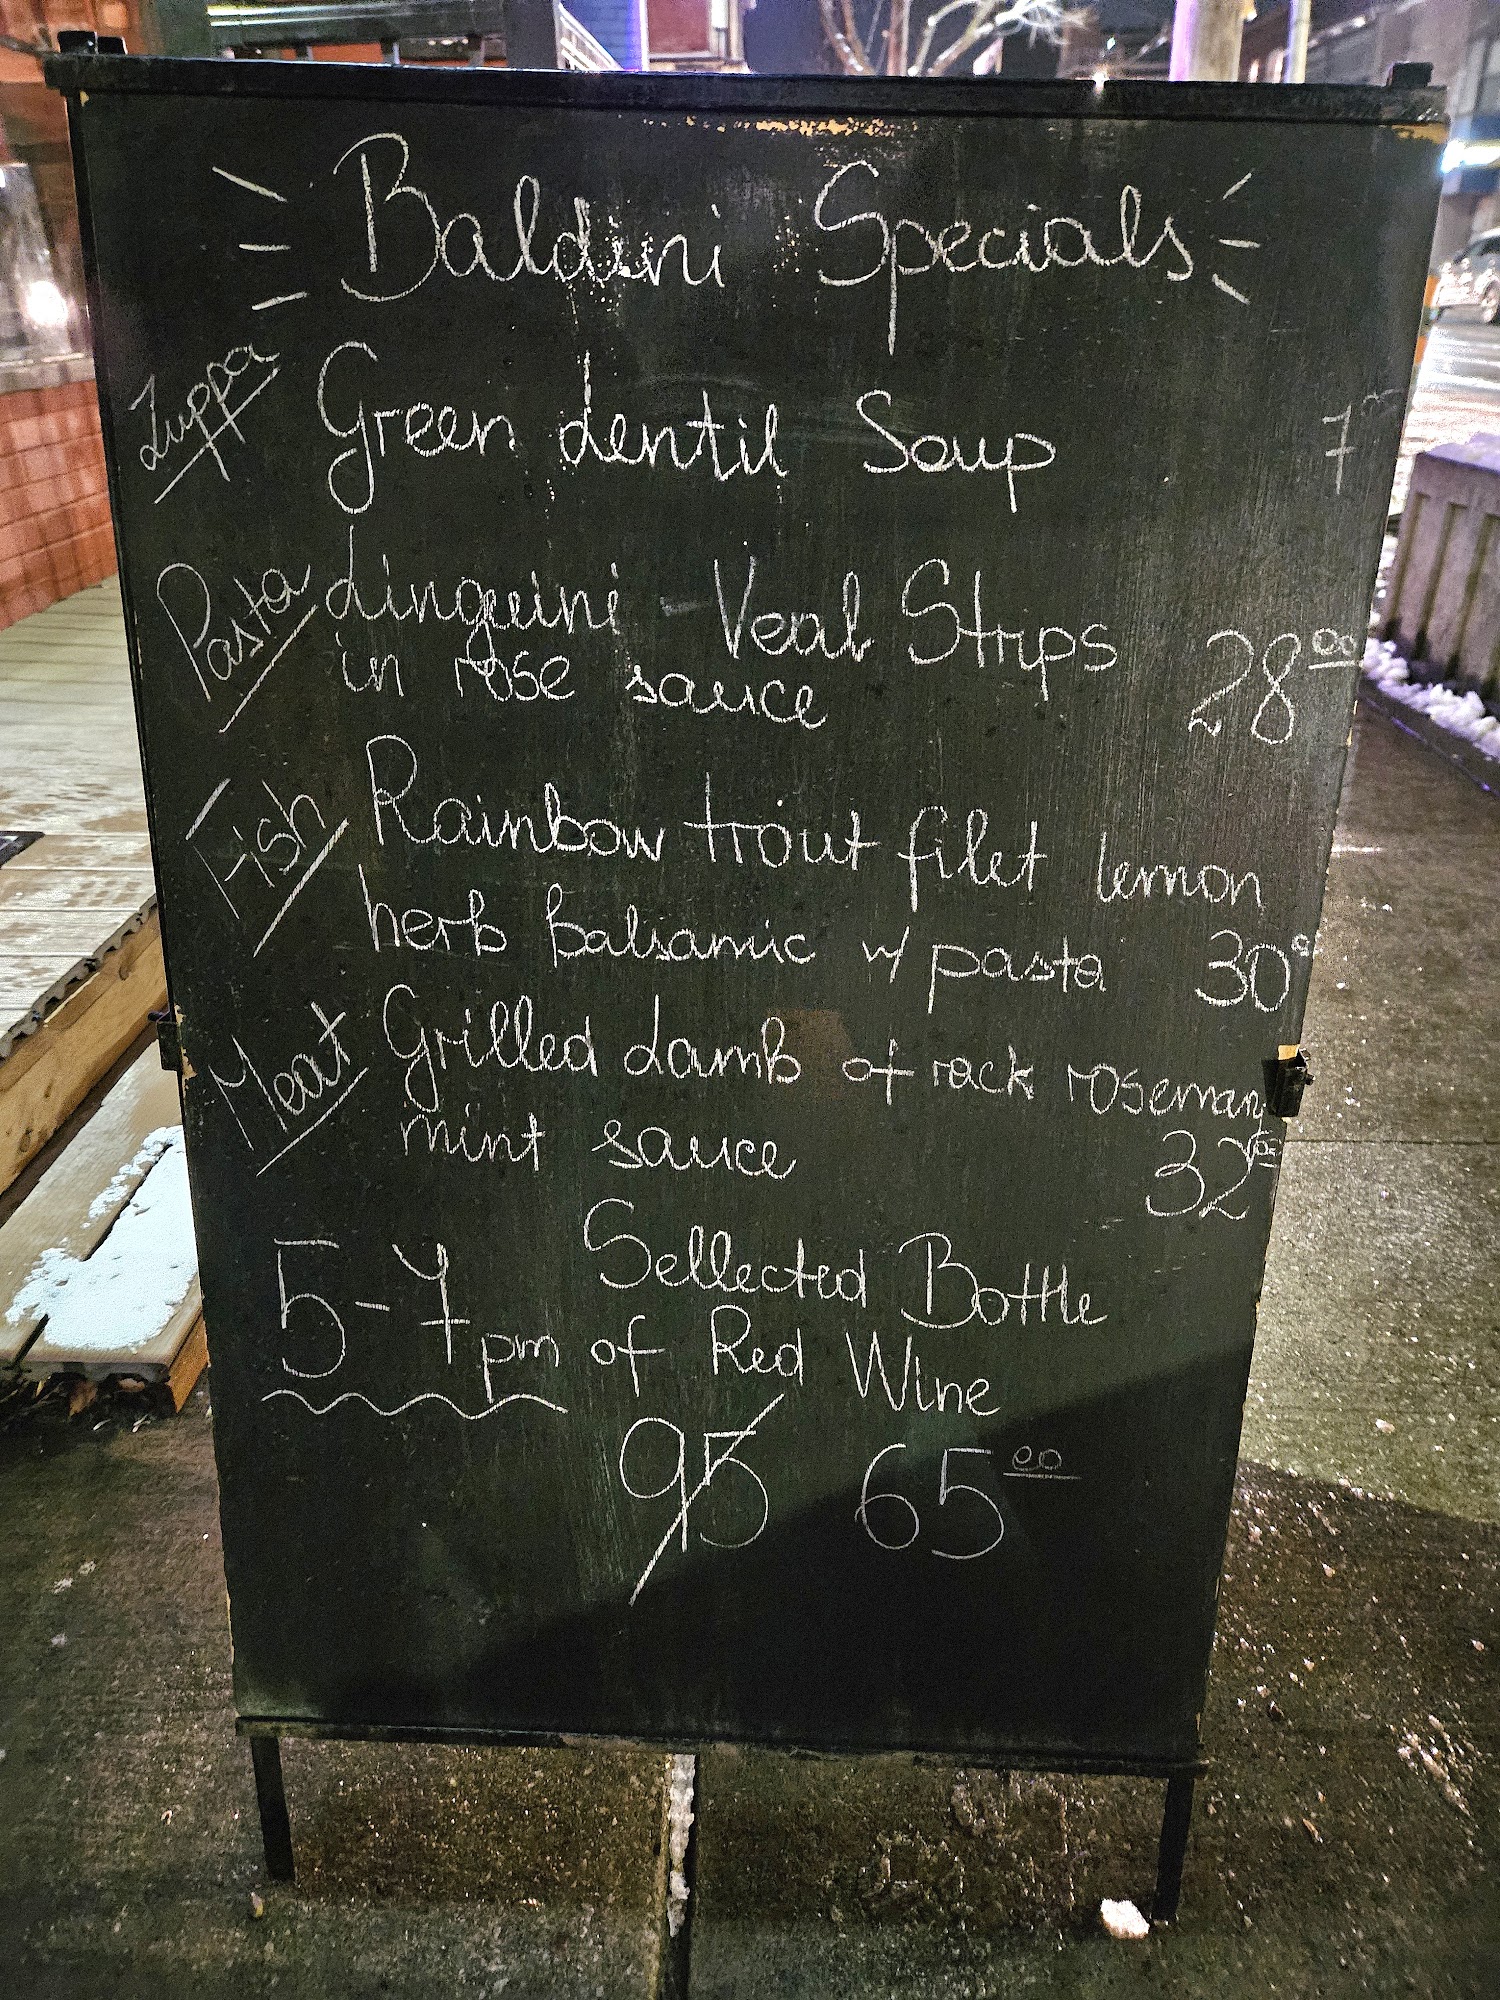 Baldini Specials
Zuppa Green Lentil Soup 7
Pasta Linguini - Veal Strips
in rose sauce 28.00
Fish Rainbow trout filet lemon
herb balsamic w/ pasta 30
Meat Grilled Lamb of rack rosemary
mint sauce 32
5-7pm Sellected Bottle
of Red Wine
95 65.00